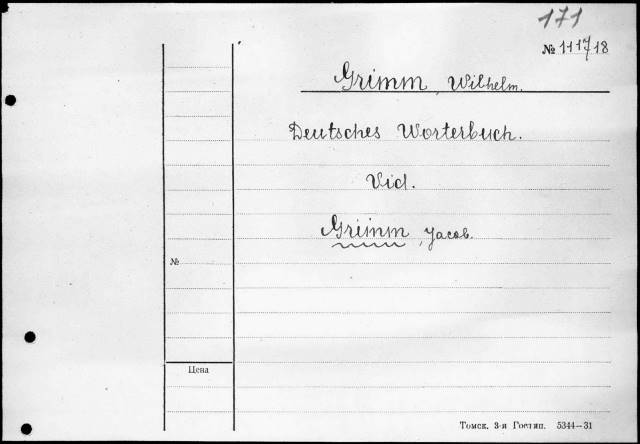 171
№ 111718
Grimm, Wilhelm.
Deutsches Worterbuch.
Vid.
Grimm, Jacob.
№
Цена
Томск. 3-я Гостип. 5344—31